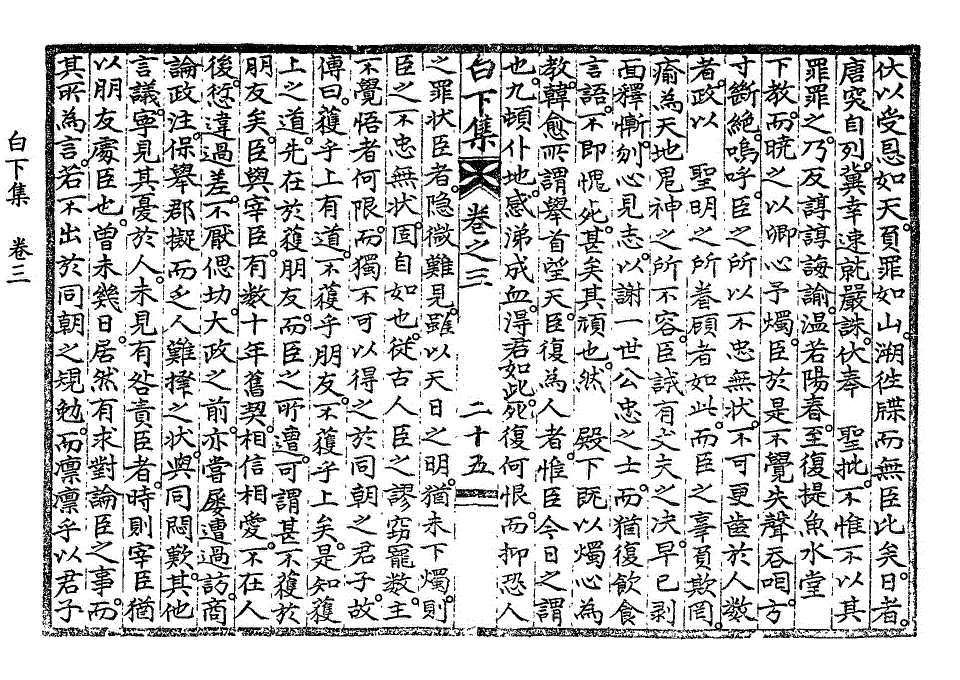 伏以受恩如天。負罪如山。溯往牒而無臣比矣。日者。
唐突自列。冀幸速就嚴誅。伏奉 聖批。不惟不以其
罪罪之。乃反諄諄誨諭。溫若陽春。至復提魚水堂
下教。而曉之以卿心予燭。臣於是不覺失聲吞咽。方
寸斷絶。嗚呼。臣之所以不忠無狀。不可更齒於人數
者。政以 聖明之所眷顧者如此。而臣之事負欺罔。
瘉為天地鬼神之所不容。臣誠有丈夫之决。早已剥
面釋慚。刎心見志。以謝一世公忠之士。而猶復飮食
言語。不即愧死。甚矣其頑也。然 殿下旣以燭心為
教。韓愈所謂擧首望天。臣復為人者。惟臣今日之謂
也。九頓仆地。感涕成血。得君如此。死復何恨。而抑恐人
白下集 卷之三 二十五
之罪狀臣者。隐微難見。雖以天日之明。猶未下燭。則
臣之不忠無状。固自如也。從古人臣之謬窃寵數。主
不覺悟者何限。而獨不可以得之於同朝之君子。故
傳曰。獲乎上有道。不獲乎朋友。不獲乎上矣。是知獲
上之道。先在於獲朋友。而臣之所遭。可謂甚不獲於
朋友矣。臣與宰臣。有数十年舊契。相信相愛。不在人
後。愆違過差。不厭偲切。大政之前。亦嘗屡遭過訪。商
論政注。保擧郡擬而乏人難擇之状。與同悶歎。其他
言議。寧見其憂於人。未見有咎責臣者。時則宰臣猶
以朋友處臣也。曾未幾日。居然有求對論臣之事。而
其所為言。若不出於同朝之規勉。而凛凛乎以君子
白下集 卷三